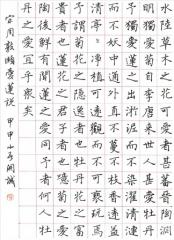 水陸草木之花可愛者甚蕃晉陶淵
明獨愛菊自李唐來世人甚愛牡丹
予獨愛蓮之出淤泥而不染濯清漣
而不妖中通外直不蔓不枝香遠益
清亭亭淨植可遠觀而不可褻玩焉
予謂菊花之隱逸者也牡丹花之富
貴者也蓮花之君子者也噫菊之愛
陶後鮮有聞蓮之愛同予者何人牡
丹之愛宜乎眾矣
宋周敦頤愛蓮說